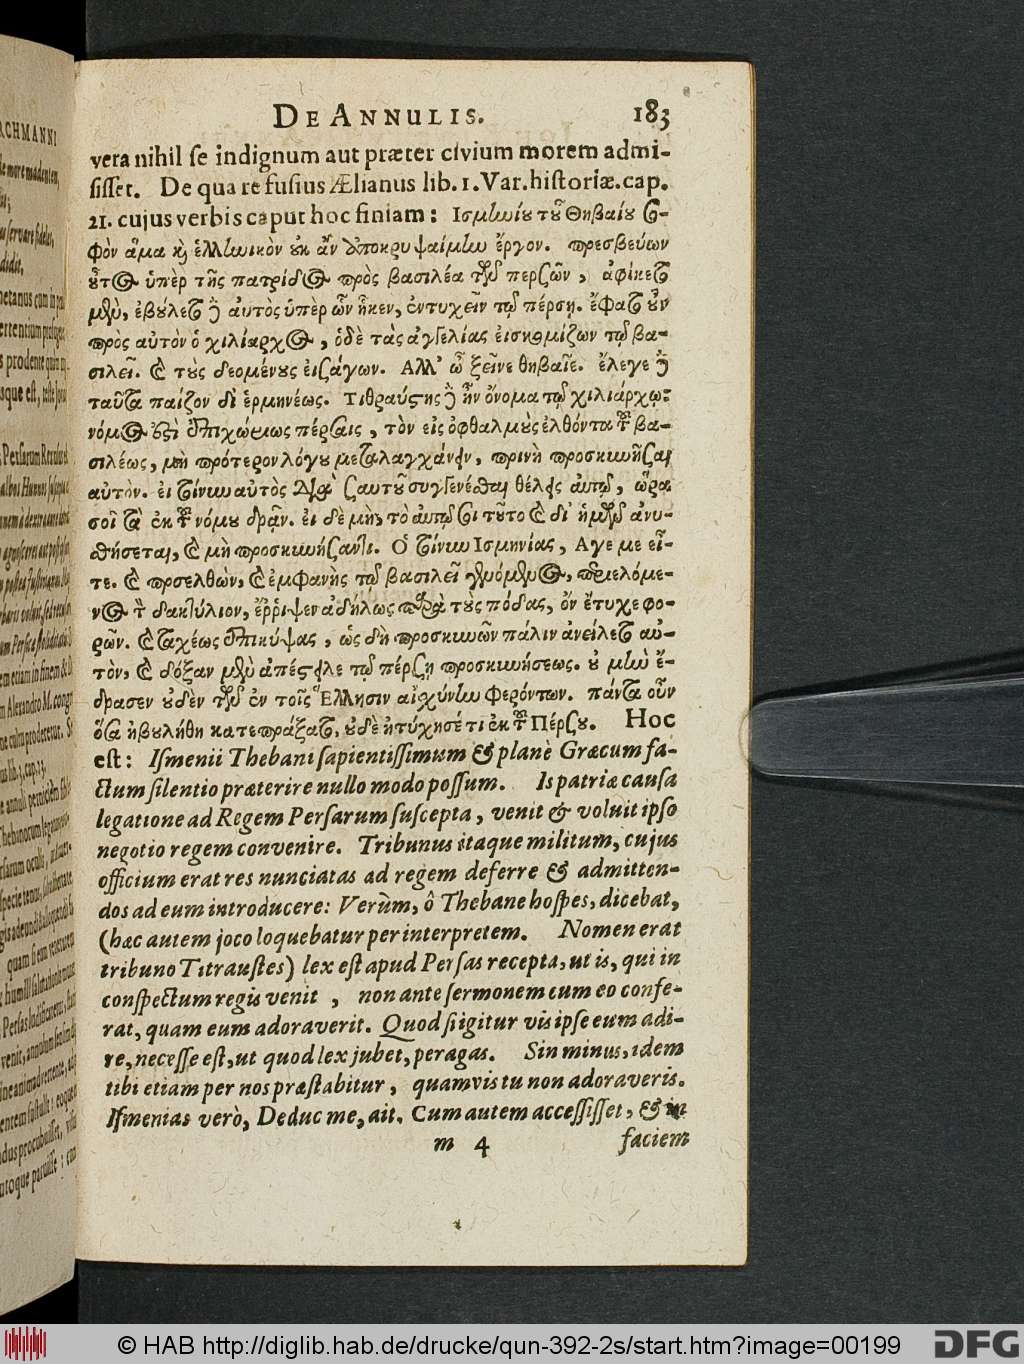 DE ANNULIS. 183
vera nihil se indignum aut præter civium morem admi-
sisset. De qua re fusius Ælianus lib. 1. Var. historiæ. cap.
21. cujus verbis caput hoc finiam: Ισμίωίου τοῦ Θηβαίου σο-
φὸν ἅμα καὶ ἑλλίωικὸν οὐκ ἂν ὑποκρυψαίμίω ἔργον. πρεσβεύων
οὗτος ὑπὲρ τῆς πατρίδος πρὸς βασιλέα τῶν περσῶν, ἀφίκετο
μὲν, ἐβούλετο δὲ αὐτὸς ὑπὲρ ὧν ἧκεν, ἐντυχεῖν τῷ πέρσῃ. ἔφατο οὖν
πρὸς αὐτὸν ὁ χιλίαρχος, ὁδὲ τὰς ἀγγελίας εἰσκομίζων τῷ βα-
σιλεῖ. καὶ τοὺς δεομένους εἰσάγων. Αλλ' ὦ ξεῖνε θηβαῖε. ἔλεγε δὲ
ταῦτα παίζον δι' ἑρμηνέως. Τιθραύστης δὲ ἦν ὄνομα τῷ χιλιάρχῳ:
νόμος ἐστὶ ἐπιχώριος πέρσαις, τὸν εἰς ὀφθαλμοὺς ἐλθόντα τοῦ βα-
σιλέως, μὴ πρότερον λόγου μεταλαγχάνειν, πρινὴ προσκυνῆσαι
αὐτὸν. εἰ τοίνυν αὐτὸς διὰ σαυτοῦ συγγενέσθαι θέλεις αὐτῷ, ὥρα
σοῖ τὰ ἐκ τοῦ νόμου δρᾷν. εἰ δὲ μὴ, τὸ αὐτῷ σοι τοῦτο καὶ δι' ἡμῶν ἀνυ-
σθήσεται, καὶ μὴ προσκυνήσαντι. Ὁ τοίνυν Ισμηνίας, Αγε με εἶ-
τε. καὶ προσελθὼν, καὶ ἐμφανὴς τῷ βασιλεῖ γενόμενος, περιελόμε-
νος τὸν δακτύλιον, ἔῤῥιψεν ἀδήλως παρὰ τοὺς πόδας, ὃν ἔτυχε φο-
ρῶν. καὶ ταχέως ἐπικύψας, ὡς δὴ προσκυνῶν πάλιν ἀνείλετο αὐ-
τὸν, καὶ δόξαν μὲν ἀπέστειλε τῷ πέρσῃ προσκυνήσεως. οὐ μὴν ἔ-
δρασεν οὐδὲν τῶν ἐν τοῖς Ἕλλησιν αἰσχύνην φερόντων. πάντα οὖν
ὅσα ἠβουλήθη κατεπράξατο, οὐδὲ ἠτύχησέ τι ἐκ τοῦ Πέρσου. Hoc
est: Ismenii Thebani sapientissimum & planè Græcum fa-
ctum silentio præterire nullo modo possum. Is patriæ causa
legatione ad Regem Persarum suscepta, venit & voluit ipso
negotio regem convenire. Tribunus itaque militum, cujus
officium erat res nunciatas ad regem deferre & admitten-
dos ad eum introducere: Verùm, ô Thebane hospes, dicebat,
(hæc autem joco loquebatur per interpretem. Nomen erat
tribuno Titraustes) lex est apud Persas recepta, ut is, qui in
conspectum regis venit, non ante sermonem cum eo confe-
rat, quam eum adoraverit. Quod si igitur vis ipse eum adi-
re, necesse est, ut quod lex jubet, peragas. Sin minus, idem
tibi etiam per nos præstabitur, quamvis tu non adoraveris.
Ismenias verò, Deduc me, ait. Cum autem accessisset, & in
m 4 faciem
© HAB http://diglib.hab.de/drucke/qun-392-2s/start.htm?image=00199 DFG